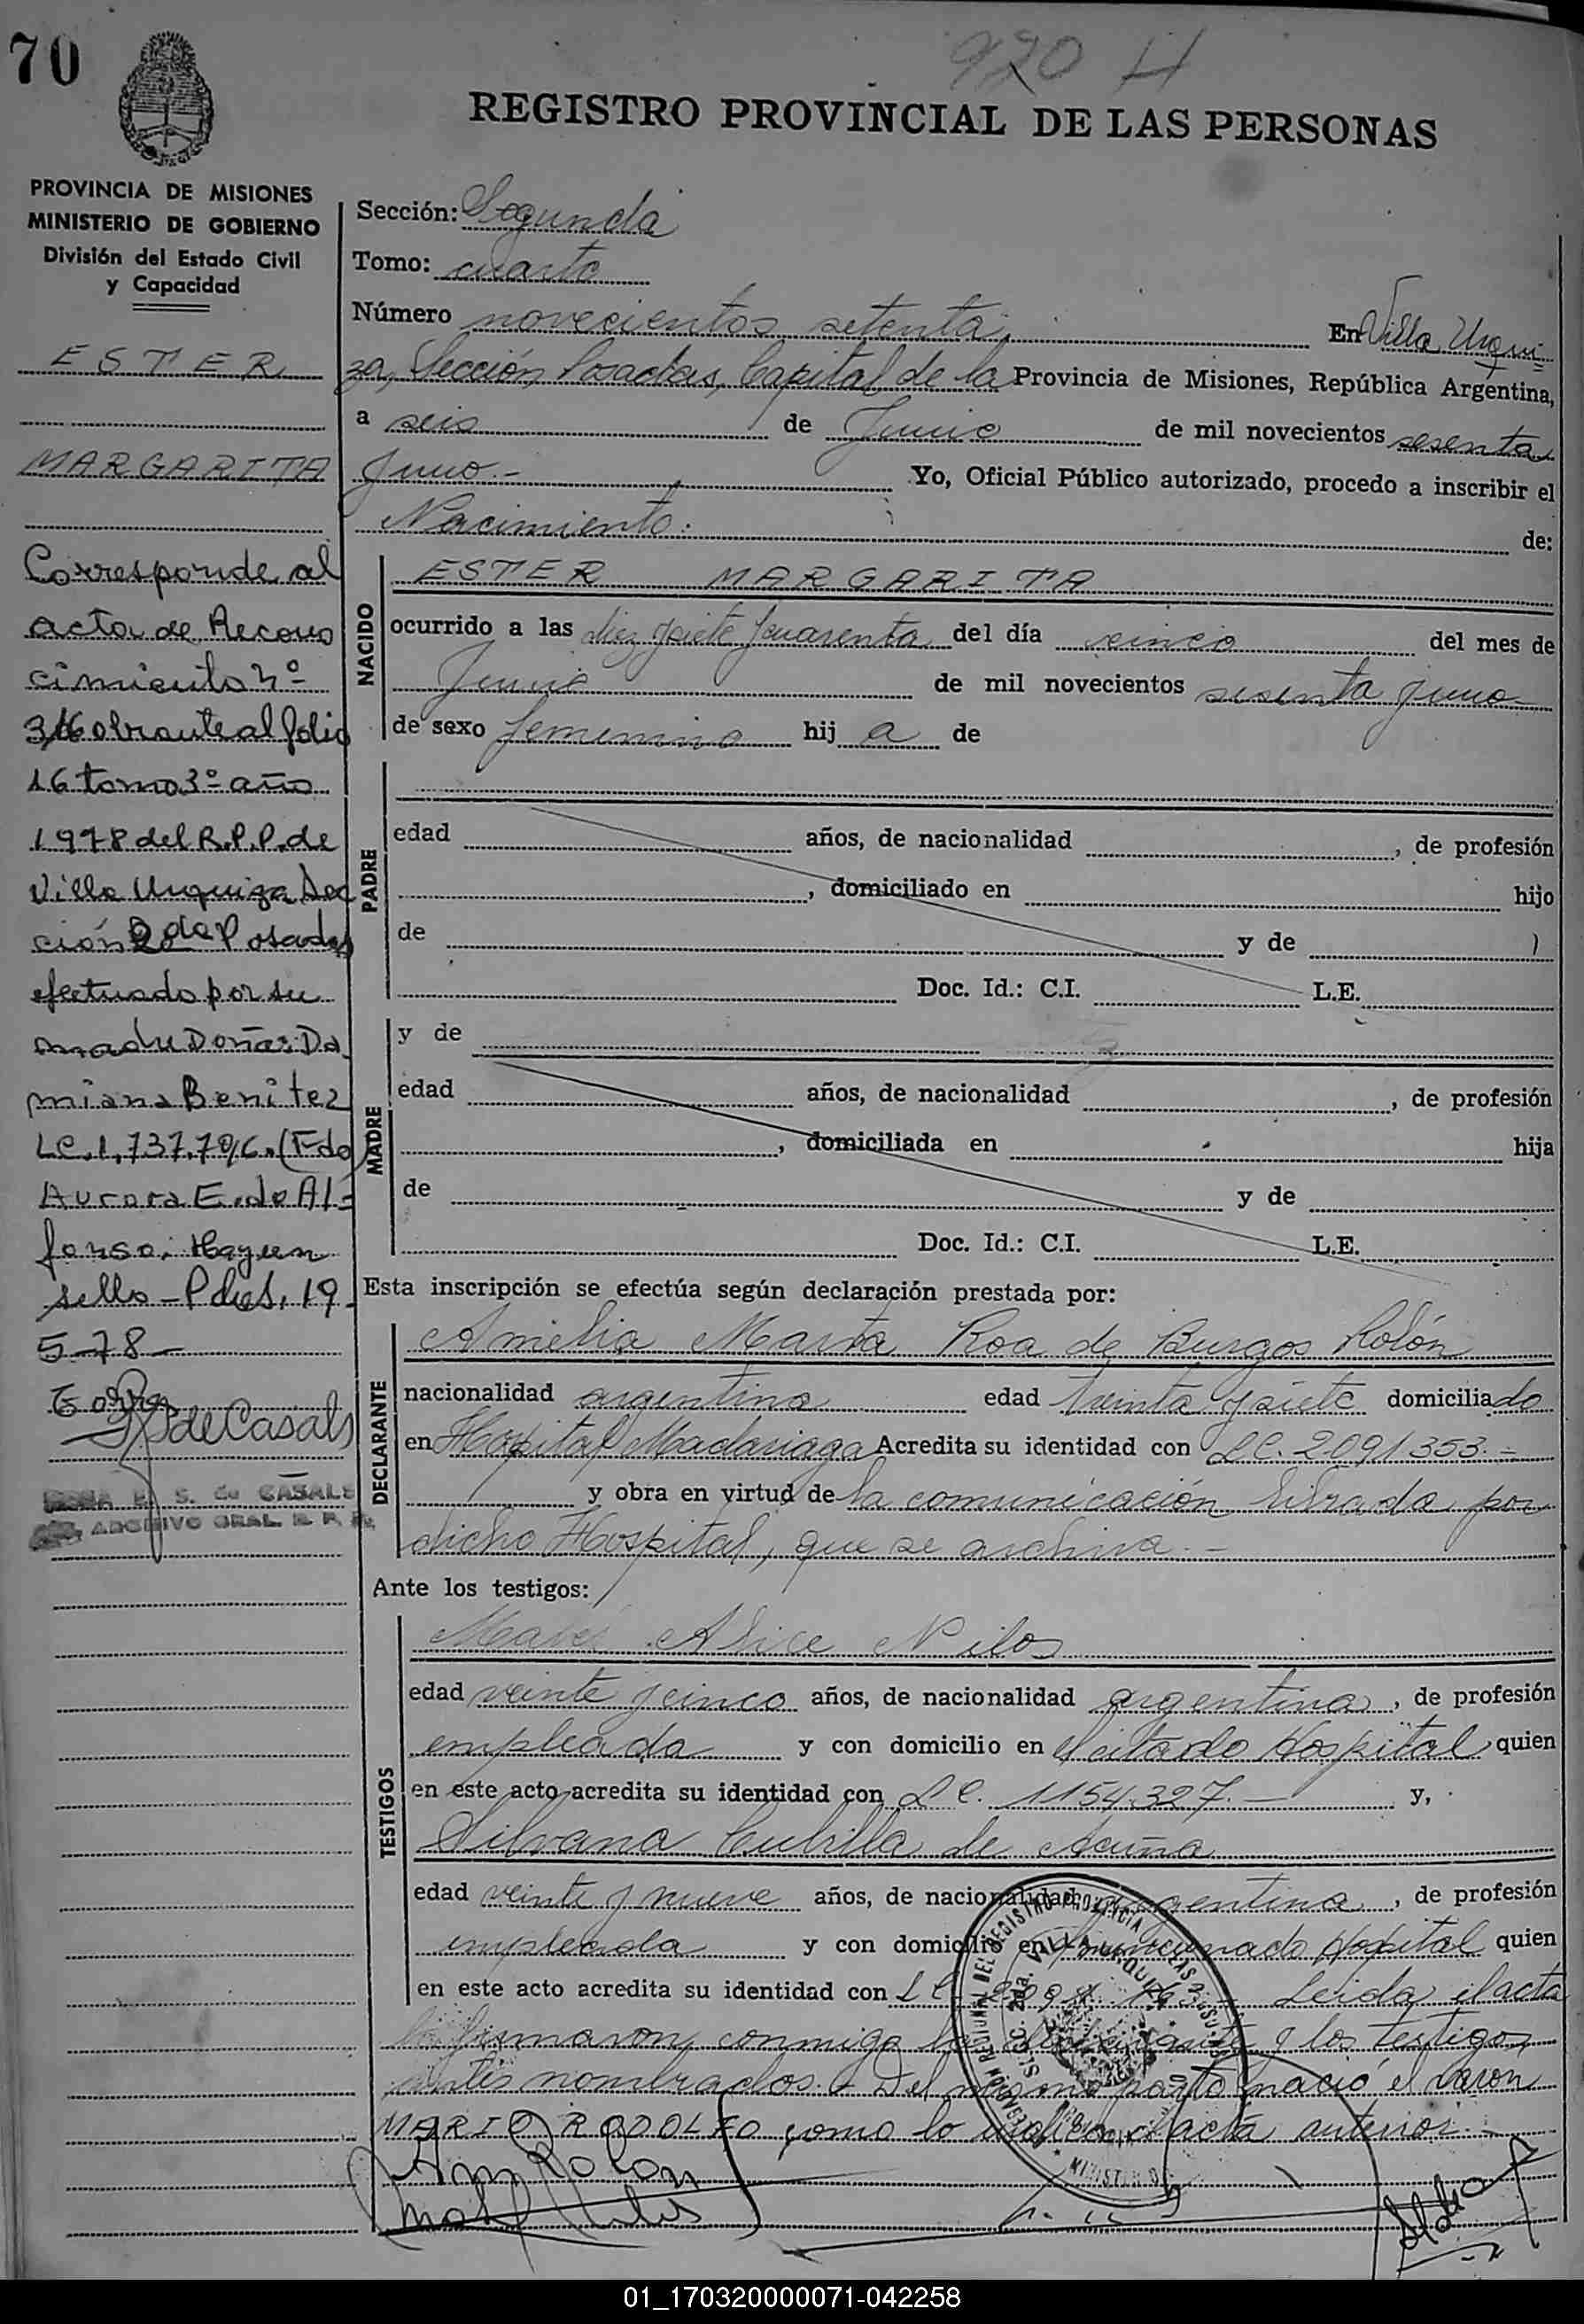 70
920 H
REGISTRO PROVINCIAL DE LAS PERSONAS
PROVINCIA DE MISIONES
MINISTERIO DE GOBIERNO
División del Estado Civil
y Capacidad
ESTER
MARGARITA
Corresponde al
acta de Recono
cimiento nº
316 obrante al folio
16 tomo 3º año
1978 del R.P.P. de
Villa Urquiza Sec
ción 2da Posadas
efectuado por su
madre Doña: Da
miana Benitez
LC. 1.737.796. (Fdo
Aurora E. de Al-
fonso. Hay un
sello - Pdas, 19-
5-78-
de Casals
E. S. de CASALS
ARCHIVO GRAL. R. P.
Sección: Segunda
Tomo: cuarto
Número novecientos setenta. En Villa Urqui
za, Sección Posadas, Capital de la Provincia de Misiones, República Argentina,
a seis de Junio de mil novecientos sesenta
y uno.- Yo, Oficial Público autorizado, procedo a inscribir el
Nacimiento. de:
NACIDO
ESTER MARGARITA
ocurrido a las diez y siete y cuarenta del día cinco del mes de
Junio de mil novecientos sesenta y uno-
de sexo femenino hij a de
PADRE
edad años, de nacionalidad , de profesión
, domiciliado en hijo
de y de
Doc. Id.: C.I. L.E.
MADRE
y de
edad años, de nacionalidad , de profesión
, domiciliada en hija
de y de
Doc. Id.: C.I. L.E.
Esta inscripción se efectúa según declaración prestada por:
DECLARANTE
Amelia María Roa de Burgos Rolón
nacionalidad argentina edad treinta y siete domiciliado
en Hospital Madariaga Acredita su identidad con LC. 2091353.-
y obra en virtud de la comunicación librada por
dicho Hospital, que se archiva.-
Ante los testigos:
TESTIGOS
Mabel Alice Nilos
edad veinte y cinco años, de nacionalidad argentina, de profesión
empleada y con domicilio en el citado Hospital quien
en este acto acredita su identidad con LC. 1154.327.- y,
Silvana Cubilla de Acuña
edad veinte y nueve años, de nacionalidad argentina, de profesión
empleada y con domicilio en el mencionado Hospital quien
en este acto acredita su identidad con LC Leida el acta
la firmaron conmigo la declarante y los testigos
antes nombrados.- Del mismo parto nació el varón
MARIO RODOLFO como lo indica el acta anterior.-
VILLA URQUIZA
01_170320000071-042258